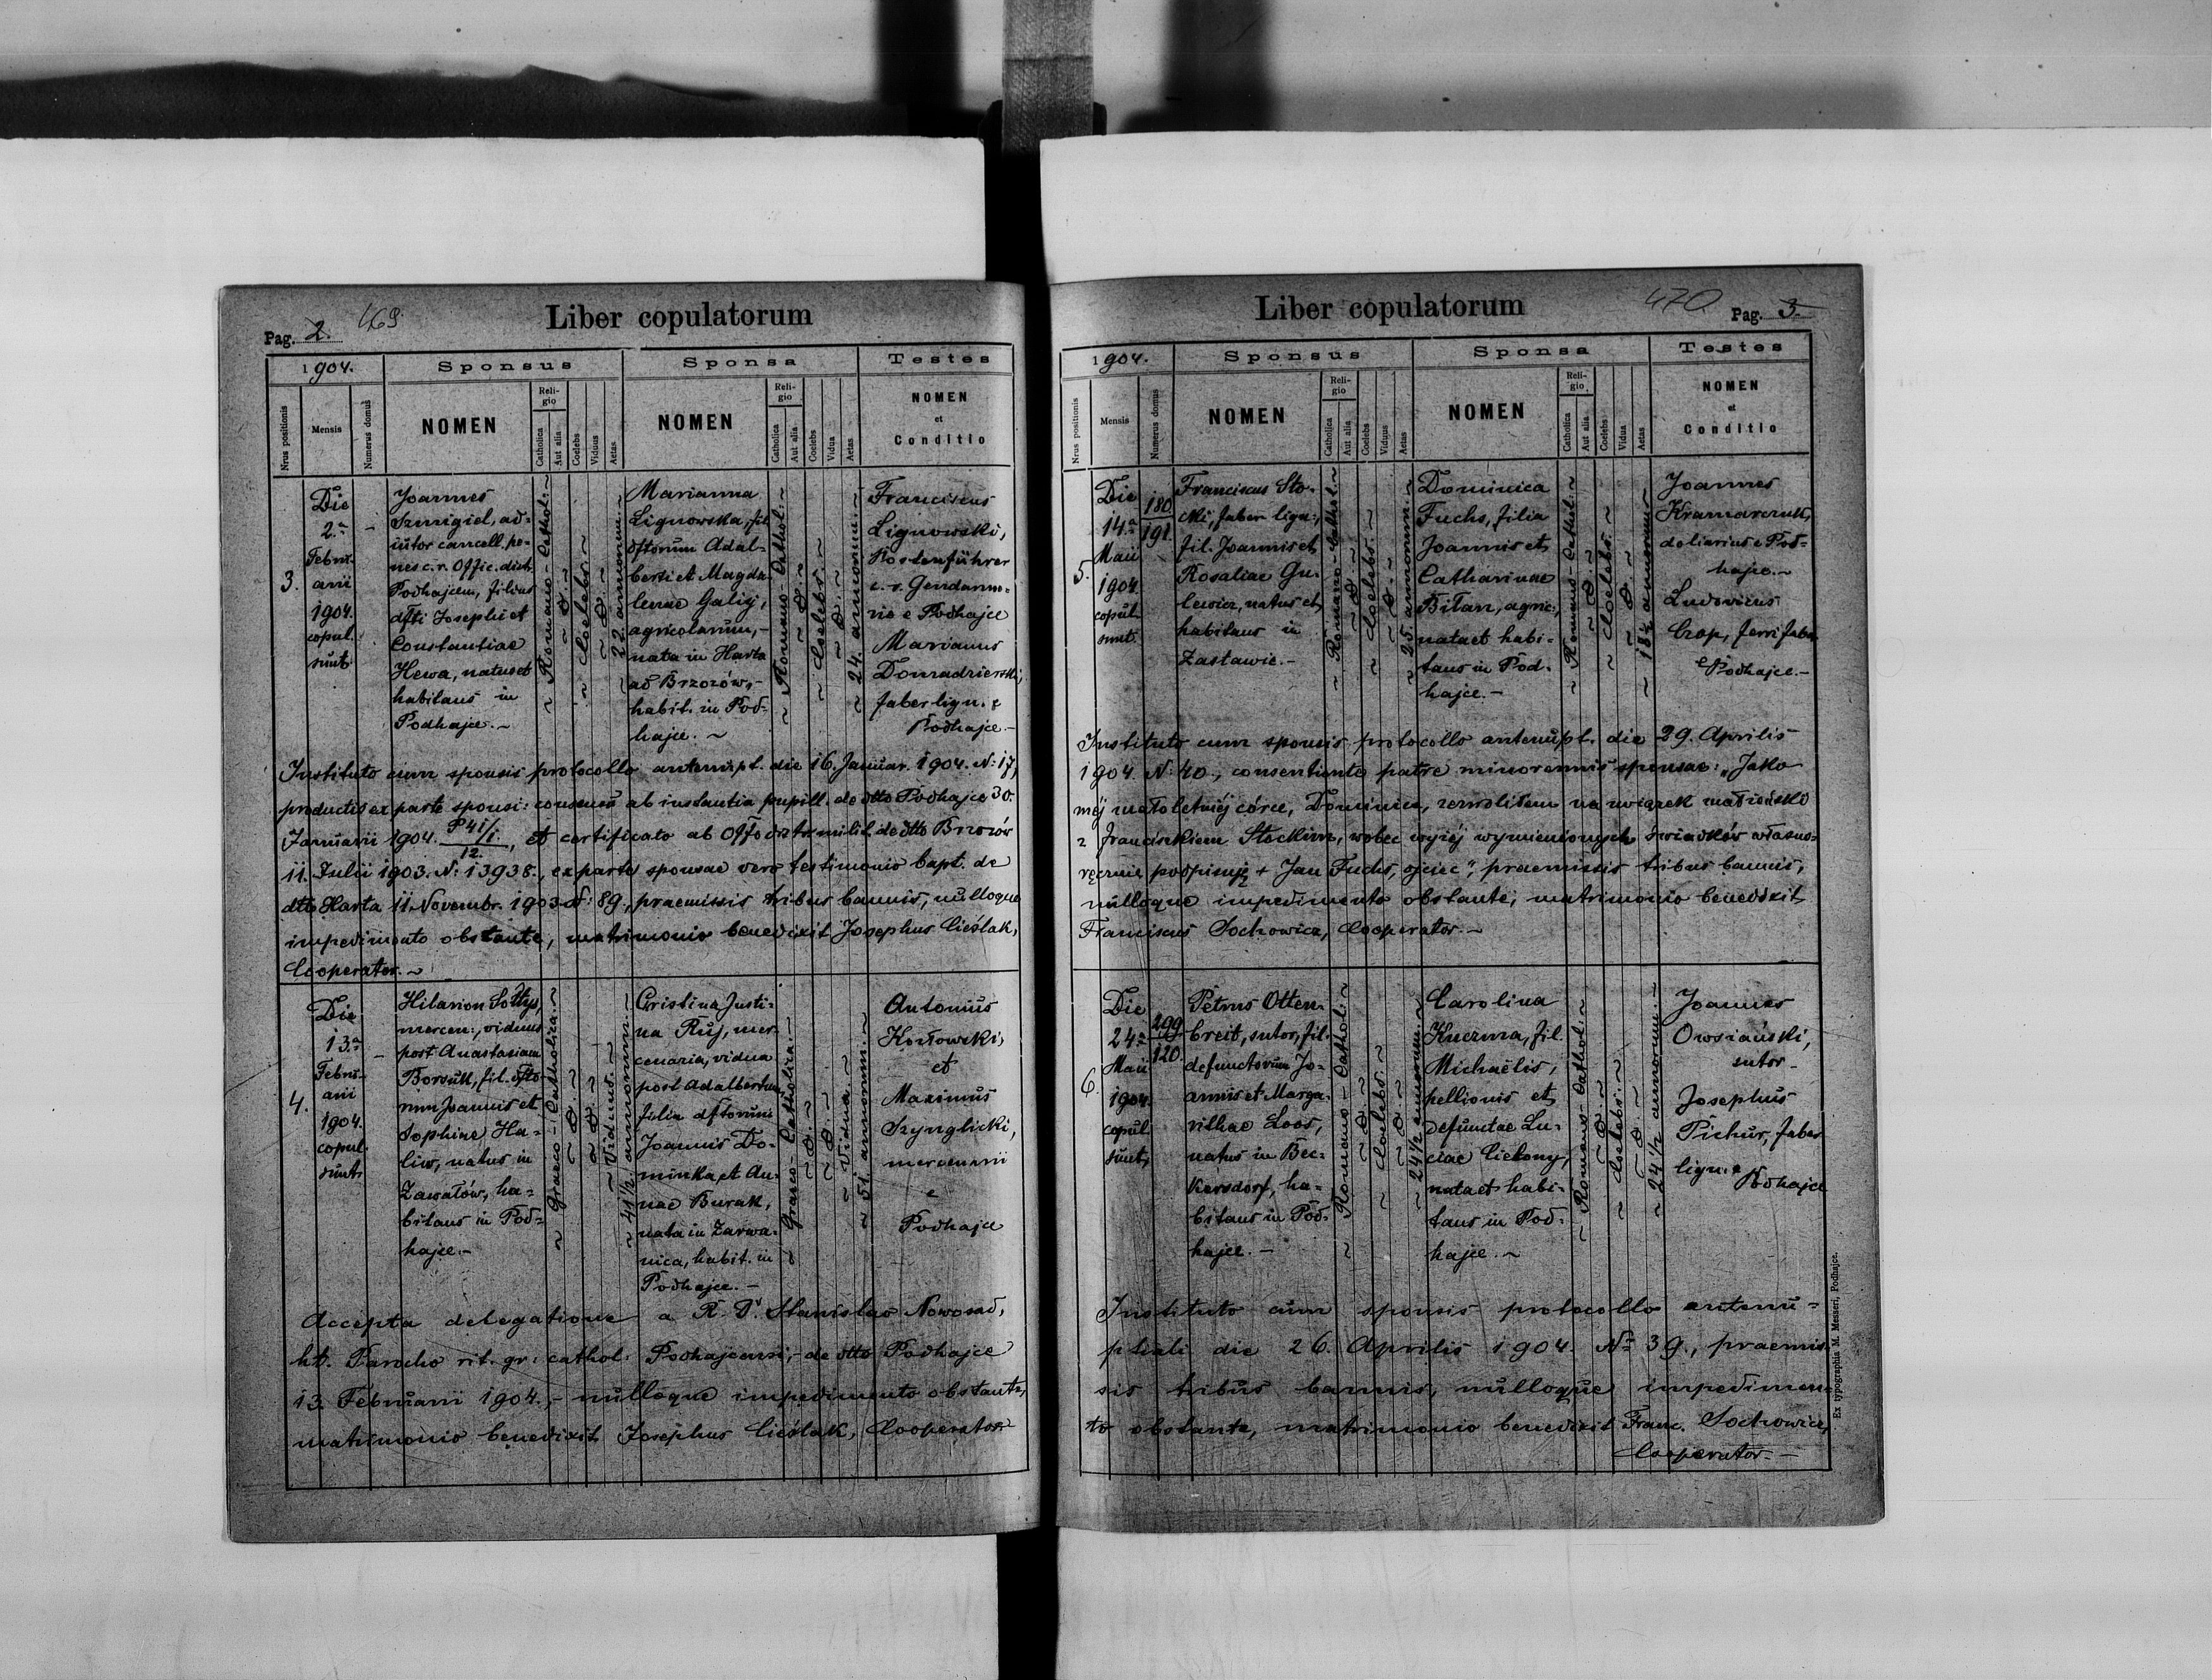 Pag. 2. 469
Liber copulatorum
1904.
Sponsus
Sponsa
Testes
Nrus positionis
Mensis
Numerus domus
NOMEN
Religio
Catholica
Aut alia
Coelebs
Viduus
Aetas
NOMEN
Religio
Catholica
Aut alia
Coelebs
Vidua
Aetas
NOMEN
et
Conditio
3.
Die
2.a
Febru-
arii
1904
copul.
sunt
Joannes
Szmigiel, ad-
iutor cancell. pe-
nes c.r. Offic. distr.
Podhajcem, filius
dfti Josephi et
Constantiae
Hewa, natus et
habitans in
Podhajce. ~
~ Romano-Cathol. ~
~ Coelebs. ~
22 annorum. ~
Marianna
Lignowska, fil.
dftorum Adal-
berti et Magda-
lenae Galij,
agricolarum, -
nata in Harta
ad Brzozów, -
habit. in Pod-
hajce. ~
~ Romano-Cathol. ~
~ Coelebs. ~
~ 24. annorum. ~
Franciscus
Lignowski,
Postenführer
c. r. Gendarme-
rie e Podhajce
Marianus
Domradzierski,
faber lign. e
Podhajce -
Instituto cum sponsis protocollo antenupt. die 16. Januar. 1904. N: 17,
productis ex parte sponsi: consensu ab instantia pupill. de dtto Podhajce 30.
Januarii 1904. P 41/1 12., et certificato ab Off. distr. milit. de dtto Brzozów
11. Julii 1903. N: 13938., ex parte sponsae vero testimonio bapt. de
dtto Harta 11. Novembr. 1903 N: 89., praemissis tribus bannis, nulloque
impedimento obstante, matrimonio benedixit Josephus Cieślak,
Cooperator. ~
4.
Die
13.a
Febru-
arii
1904.
copul.
sunt
Hilarion Sołtys,
mercen:, viduus
post Anastasiam
Borsuk, fil. dfto-
rum Joannis et
Sophiae Ha-
liw, natus in
Zawałów, ha-
bitans in Pod-
hajce. -
~ Graeco-Catholica. ~
~ Viduus. ~
~ 41 1/2 annorum. ~
Cristina Justi-
na Ruj, mer-
cenaria, vidua
post Adalbertum
filia dftorum
Joannis Do-
minka et An-
nae Burak,
nata in Zarwa-
nica, habit. in
Podhajce. -
~ Graeco-Catholica. ~
~ Vidua. ~
~ 51. annorum. ~
Antonius
Kozłowski,
et
Maximus
Szynglicki,
mercenarii
e
Podhajce
Accepta delegatione a R. D. Stanislao Nowosad,
ht. Parocho rit. gr: cathol: Podhajcensi, de dtto Podhajce
13. Februarii 1904., - nulloque impedimento obstante,
matrimonio benedixit Josephus Cieślak, Cooperator
Liber copulatorum
470 Pag. 3.
1904.
Sponsus
Sponsa
Testes
Nrus positionis
Mensis
Numerus domus
NOMEN
Religio
Catholica
Aut alia
Coelebs
Viduus
Aetas
NOMEN
Religio
Catholica
Aut alia
Coelebs
Vidua
Aetas
NOMEN
et
Conditio
5.
Die
14.a
Maii
1904
copul.
sunt
180
191.
Franciscus Sto-
cki, faber lign:,
fil. Joannis et
Rosaliae Gu-
lewicz, natus et
habitans in
Zastawie. -
~ Romano-Cathol. ~
~ Coelebs. ~
~ 25. annorum. ~
Dominica
Fuchs, filia
Joannis et
Catharinae
Bitan, agric:,
nata et habi-
tans in Pod-
hajce. -
~ Romano-Cathol. ~
~ Coelebs. ~
~ 18 1/2 annorum ~
Joannes
Kramarczuk,
doliarius e Pod-
hajce. ~
Ludovicus
Czop, ferri faber
e Podhajce. -
Instituto cum sponsis protocollo antenupt. die 29. Aprilis
1904. N: 40., consentiente patre minorennis sponsae: „Jako
mej małoletniéj córce, Dominice, zezwoliłem na związek małżeński
z Franciszkiem Stockim, wobec wyżéj wymienionych świadków własno-
ręcznie podpisuję + Jan Fuchs, ojciec", praemissis tribus bannis,
nulloque impedimento obstante, matrimonio benedixit
Franciscus Sochowicz, Cooperator. ~
6.
Die
24.a
Maii
1904.
copul.
sunt,
299
120.
Petrus Otten-
breit, sutor, fil.
defunctorum Jo-
annis et Marga-
rithae Loos,
natus in Bec-
kersdorf, ha-
bitans in Pod-
hajce. -
~ Romano-Cathol. ~
~ Coelebs. ~
~ 24 1/2 annorum. ~
Carolina
Kuczma, fil.
Michaëlis,
pellionis et
defunctae Lu-
ciae Cielony,
nata et habi-
tans in Pod-
hajce. ~
~ Romano-Cathol. ~
~ Coelebs. ~
~ 24 1/2 annorum. ~
Joannes
Owsiański,
sutor -
Josephus
Pichur, faber
lign. e
Podhajce
Instituto cum sponsis protocollo antenu-
ptiali die 26. Aprilis 1904. No 39., praemis-
sis tribus bannis, nulloque impedimen-
to obstante, matrimonio benedixit Franc. Sochowicz,
Cooperator. -
Ex typographia M. Messeri, Podhajce.